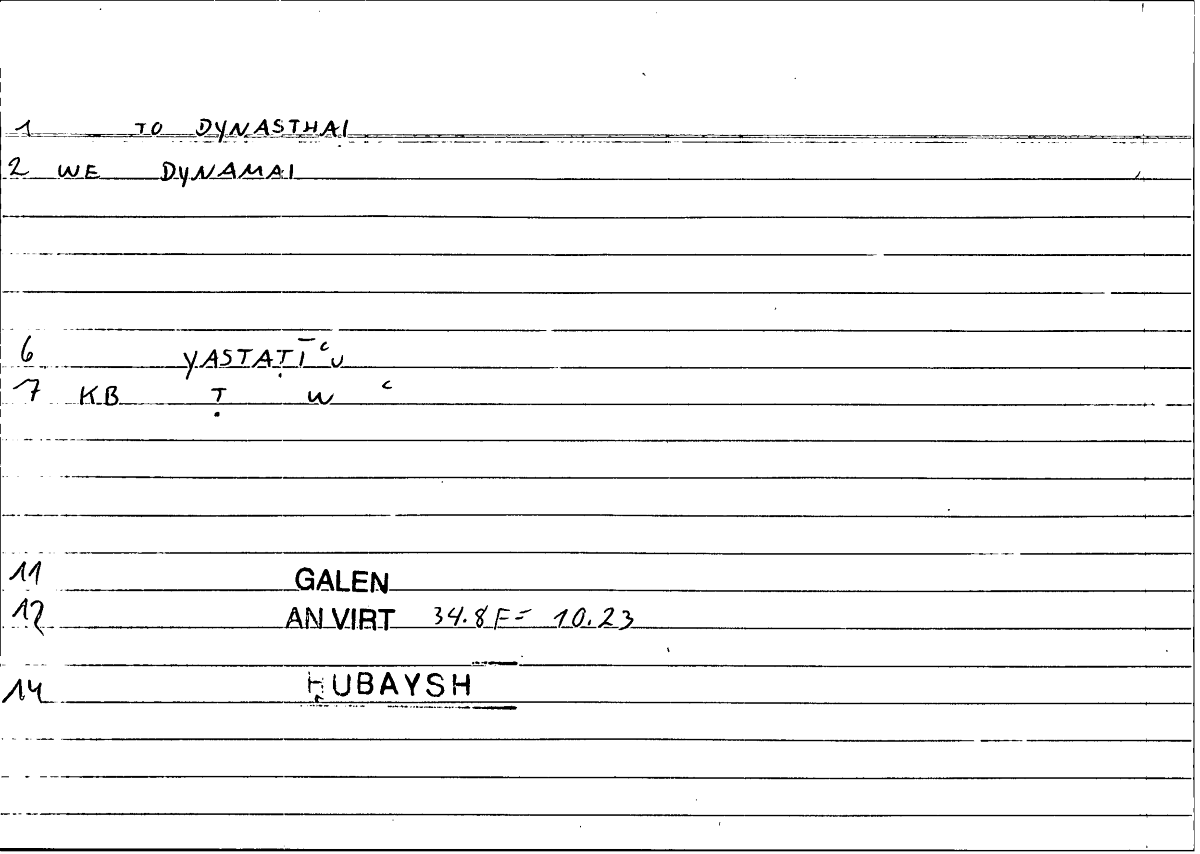 1 TO DYNASTHAI
2 WE DYNAMAI
6 YASTAṬĪʿU
7 KB Ṭ W ʿ
11 GALEN
12 AN VIRT 34.8F= 10.23
14 ḤUBAYSH